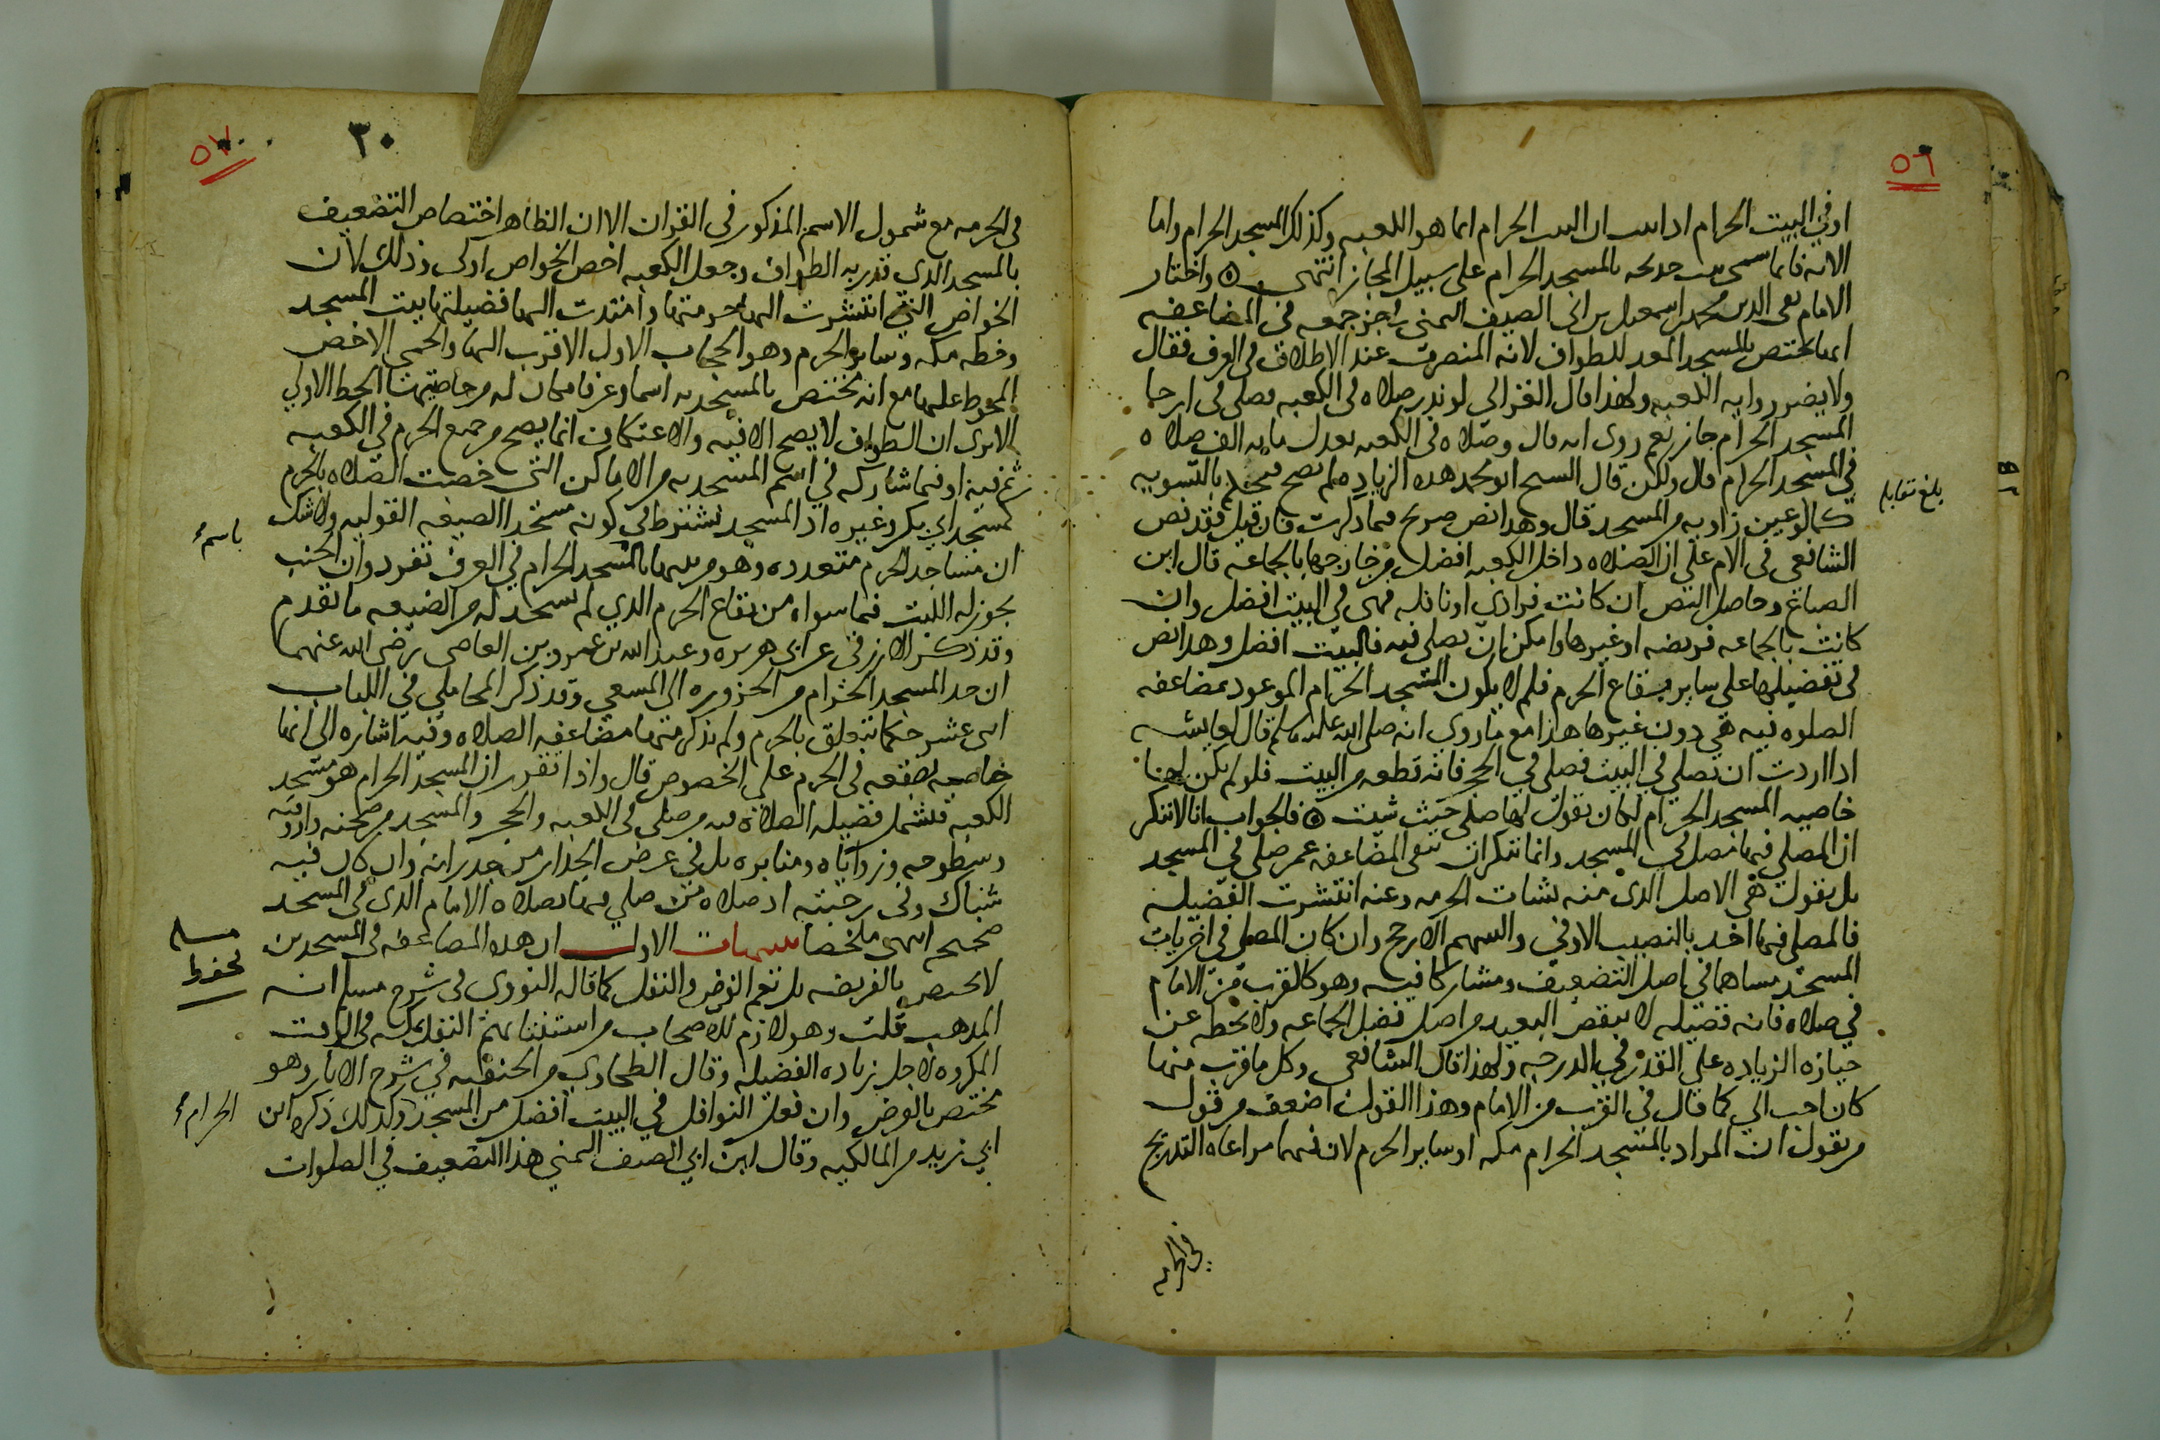 ٥٦
او في البيت الحرام اذا ست ان البيت الحرام انما هو الكعبه وكذلك المسجد الحرام واما
الامام تقي الدين محمد بن اسمعيل بن ابي الصيف اليمني في جزء جمعه في المضاعفه
انها تختص بالمسجد المعد للطواف لانه المنصرف عند الاطلاق في العرف فقال
ولا يضر روايه الكعبه ولهذا قال الغزالي لو نذر صلاه في الكعبه فصلى في ارجا
المسجد الحرام جاز نعم روى انه قال وصلاه في الكعبه تعدل مايه الف صلاه
في المسجد الحرام قال ولكن قال الشيخ ابو محمد هذه الزياده لم تصح فيحكم بالتسويه
كما لو عين زاويه من المسجد قال وهذا نص صريح فيما ذكرت فان قيل فقد نص
الشافعي في الام على ان الصلاه داخل الكعبه افضل من خارجها بالجماعه قال ابن
الصباغ وحاصل النص ان كانت فرادى او نافله فهي في البيت افضل وان
كانت بالجماعه فريضه او غيرها وامكن ان يصلى فيه فالبيت افضل وهذا نص
في تفضيلها على ساير بقاع الحرم فلم لا يكون المسجد الحرام الموعود بمضاعفه
الصلوه فيه هي دون غيرها هذا مع ما روى انه صلى الله عليه وسلم قال لعايشه
اذا اردت ان تصلي في البيت فصلي في الحجر فانه قطعه من البيت فلو لم يكن لهذا
خاصيه المسجد الحرام لكان يقول لها صلي حيث شيت ۞ فالجواب انا لا ننكر
ان المصلي فيها مصل في المسجد وانما ننكر ان تنتفي المضاعفه عمن صلى في المسجد
بل نقول هي الاصل الذي منه نشات الحرمه وعنه انتشرت الفضيله
فالمصلي فيها اخذ بالنصيب الاوفى والسهم الارجح وان كان المصلي في اخريات
المسجد مساهما في اصل التضعيف ومشاركا فيه وهو كالقرب من الامام
في صلاه فانه فضيله لا ينقص البعيد من اصل فضل الجماعه ولا تحطه عن
حيازه الزياده على القدر في الدرجه ولهذا قال الشافعي وكل ما قرب منها
كان احب الي كما قال في القرب من الامام وهذا القول اضعف من قول
من يقول ان المراد بالمسجد الحرام مكه او ساير الحرم لان فيهما مراعاه التدريج
في الحرمه
بلغ مقابله
٥٧
٣٠
في الحرمه مع شمول الاسم المذكور في القران الا ان الظاهر اختصاص التضعيف
بالمسجد الذي قدر به الطواف وجعل الكعبه اخص الخواص اولى وذلك لان
الخواص التي انتشرت اليها حرمتها وامتدت اليها فضيلتها بيت المسجد
وخطه مكه وساير الحرم وهو الحجاب الاول الاقرب اليها والحمى الاخص
المحوط عليها مع انه مختص بالمسجديه اسما وعرفا فكان له من خاصيتها الحظ الاولي
الا ترى ان الطواف لا يصح الا فيه والاعتكاف انما يصح من جميع الحرم في الكعبه
ثم فيه او فيما شاركه في اسم المسجديه من الاماكن التي خصت الصلاه بالحرم
كمسجد ابي بكر وغيره اذ المسجد تشترط في كونه مسجدا الصيغه القوليه ولا شك
ان مساجد الحرم متعدده وهو من بينها بالمسجد الحرام في العرف تفرد وان الجنب
يجوز له اللبث فيما سواه من بقاع الحرم الذي لم تسجد له من الصيغه ما تقدم
وقد ذكر الازرقي عن ابي هريره وعبد الله بن عمرو بن العاصي رضي الله عنهما
ان حد المسجد الحرام من الحزوره الى المسعى وقد ذكر المحاملي في اللباب
اثنى عشر حكما تتعلق بالحرم ولم يذكر منها مضاعفه الصلاه وفيه اشاره الى انها
خاصه ببقعه في الحرم على الخصوص قال واذا تقرر ان المسجد الحرام هو مسجد
الكعبه فتشمل فضيله الصلاه فيه من صلى في الكعبه والحجر والمسجد من صحنه واروقته
وسطوحه وزواياه ومنابره بل في عرض الجدار من جدرانه وان كان فيه
شباك وفي رحبته اذ صلاه من صلى فيها بصلاه الامام الذي في المسجد
صحيحه انتهى ملخصا تنبيهات الاول ان هذه المضاعفه في المسجدين
لا تختص بالفريضه بل تعم الفرض والنفل كما قاله النووي في شرح مسلم انه
المذهب قلت وهو لازم للاصحاب من استثنائهم النفل بمكه في الوقت
المكروه لاجل زياده الفضيله وقال الطحاوي من الحنفيه في شرح الاثار وهو
مختص بالفرض وان فعل النوافل في البيت افضل من المسجد وكذلك ذكره ابن
ابي زيد من المالكيه وقال ابن ابي الصيف اليمني هذا التضعيف في الصلوات
باسم
تحفظ
الحرام